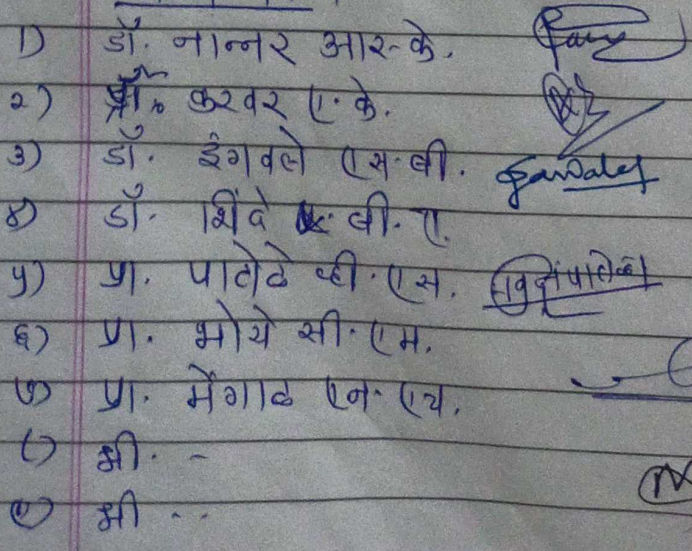 १) डॉ. नान्नर आर. के.
२) प्रा. करवर ए. के.
३) डॉ. इंगवले एस. बी.
४) डॉ. शिंदे बी. ए.
५) प्रा. पाटोळे व्ही. एस.
६) प्रा. भोये सी. एम.
७) प्रा. मेंगाळ एन. एच.
८) श्री. -
९) श्री. --